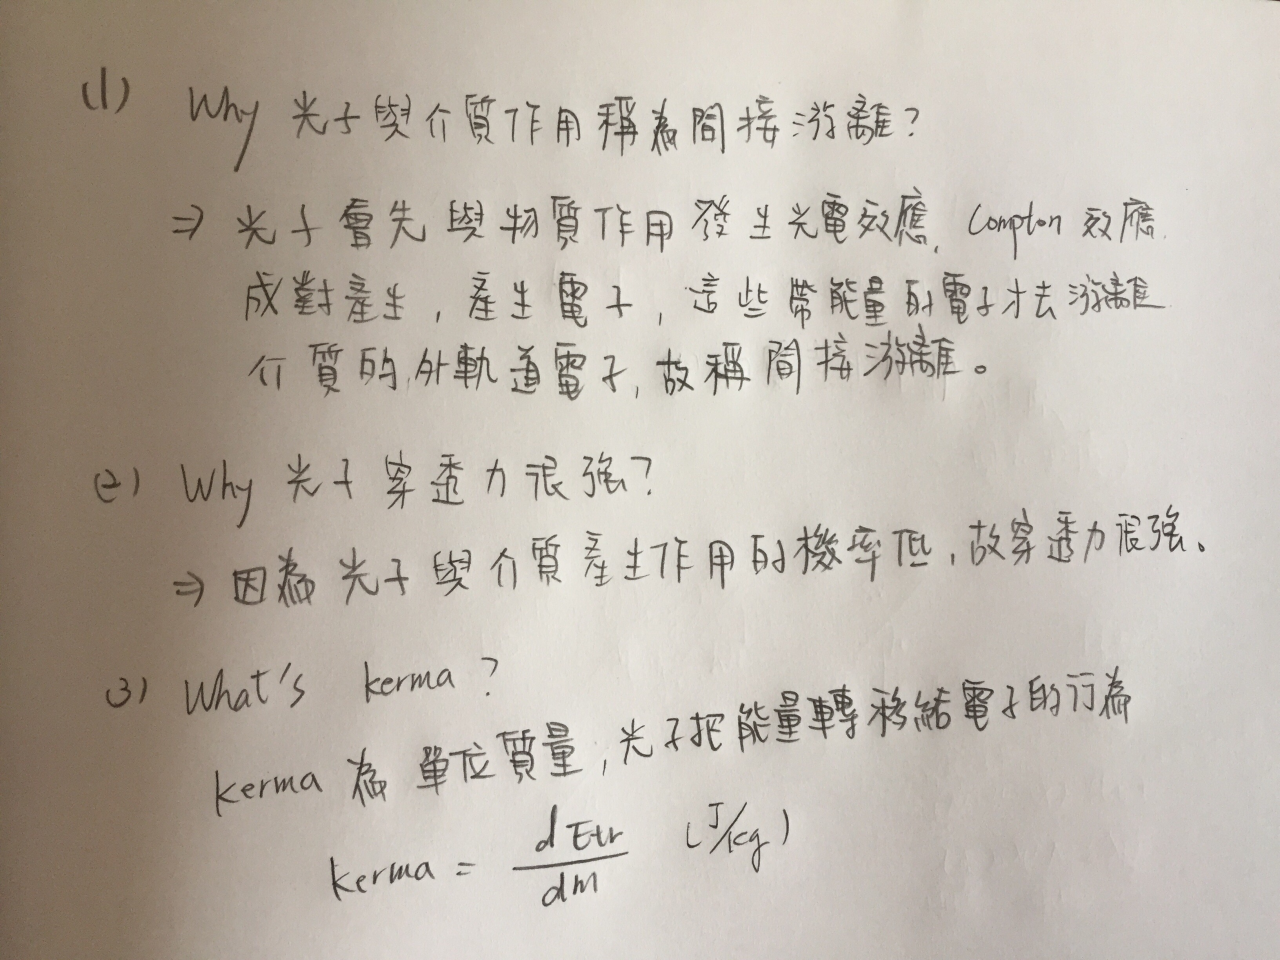 (1) Why 光子與介質作用稱為間接游離?
⇒ 光子會先與物質作用發生光電效應, Compton 效應,
成對產生, 產生電子, 這些帶能量的電子才去游離
介質的外軌道電子, 故稱間接游離。
(2) Why 光子穿透力很強?
⇒ 因為光子與介質產生作用的機率低, 故穿透力很強。
(3) What's kerma?
kerma 為單位質量, 光子把能量轉移給電子的行為
kerma = dEtr/dm (J/kg)